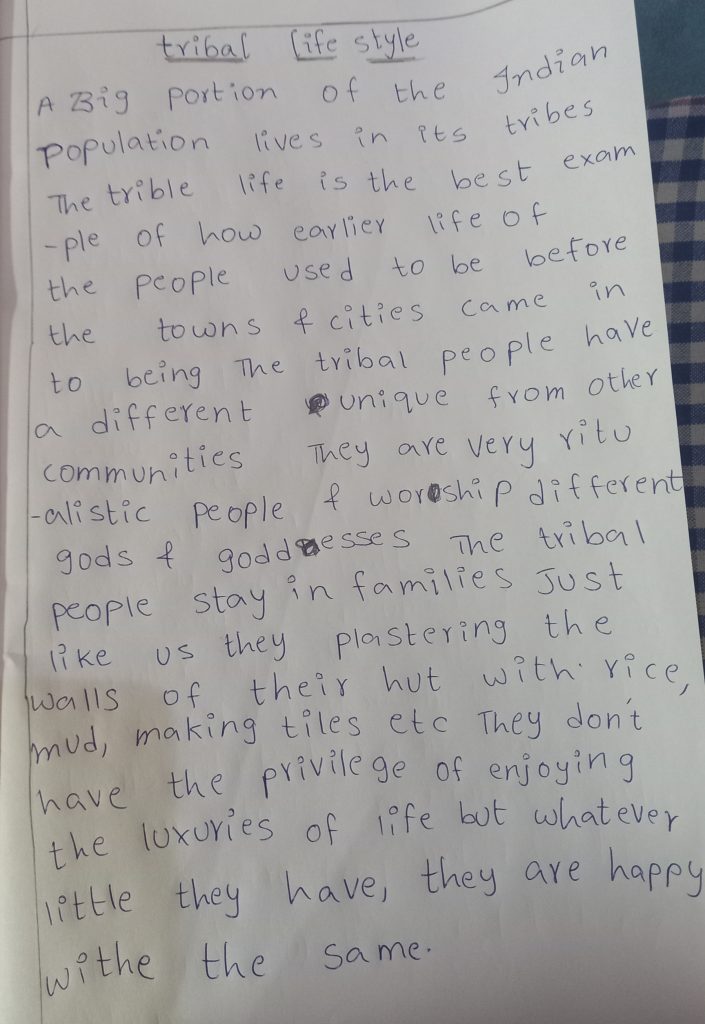 tribal life style
A Big portion of the Indian
population lives in its tribes
The trible life is the best exam
-ple of how earlier life of
the people used to be before
the towns & cities came in
to being The tribal people have
a different unique from other
communities They are very ritu
-alistic people & worship different
gods & goddesses The tribal
people stay in families Just
like us they plastering the
walls of their hut with rice,
mud, making tiles etc They don't
have the privilege of enjoying
the luxuries of life but whatever
little they have, they are happy
withe the same.